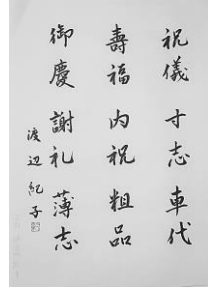 祝儀 寸志 車代
壽福 内祝 粗品
御慶 謝礼 薄志
渡辺紀子